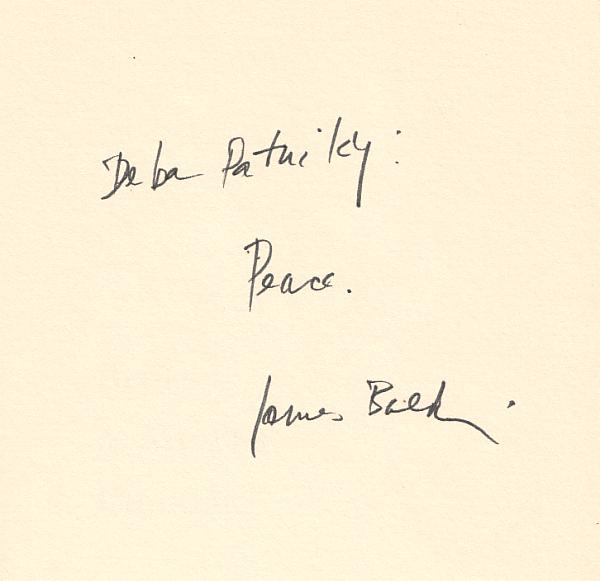 Deba Patniky:
Peace.
James Baldwin